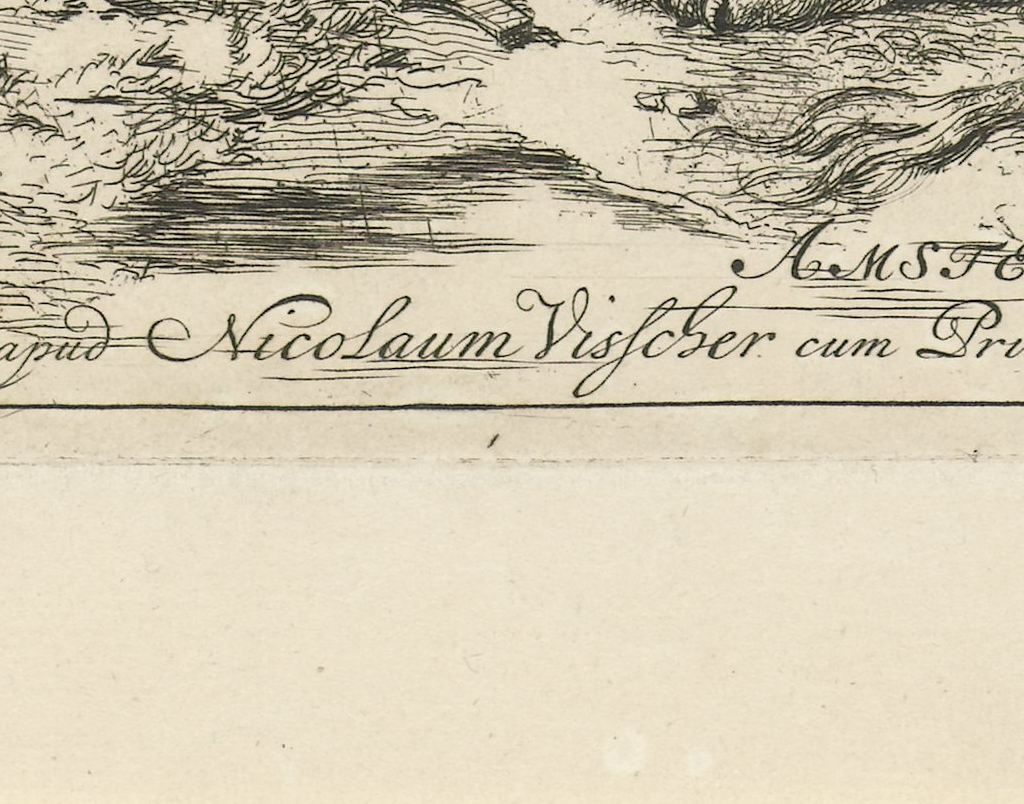 AMSTE
apud Nicolaum Visscher cum Pri